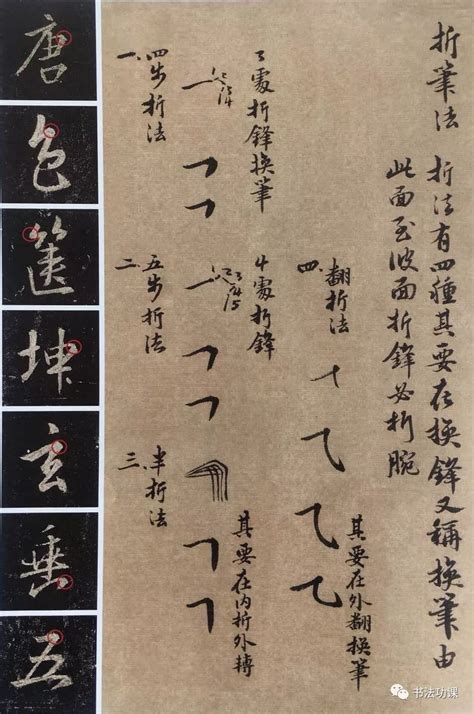 折筆法 折法有四種其要在換鋒又稱換筆由
此面至彼面折鋒必折腕
四、翻折法
其要在外翻換筆
3處折鋒換筆
4處折鋒
其要在内折外轉
一、四步折法
二、五步折法
三、半折法
唐
色
坤
玄
垂
五
书法功课